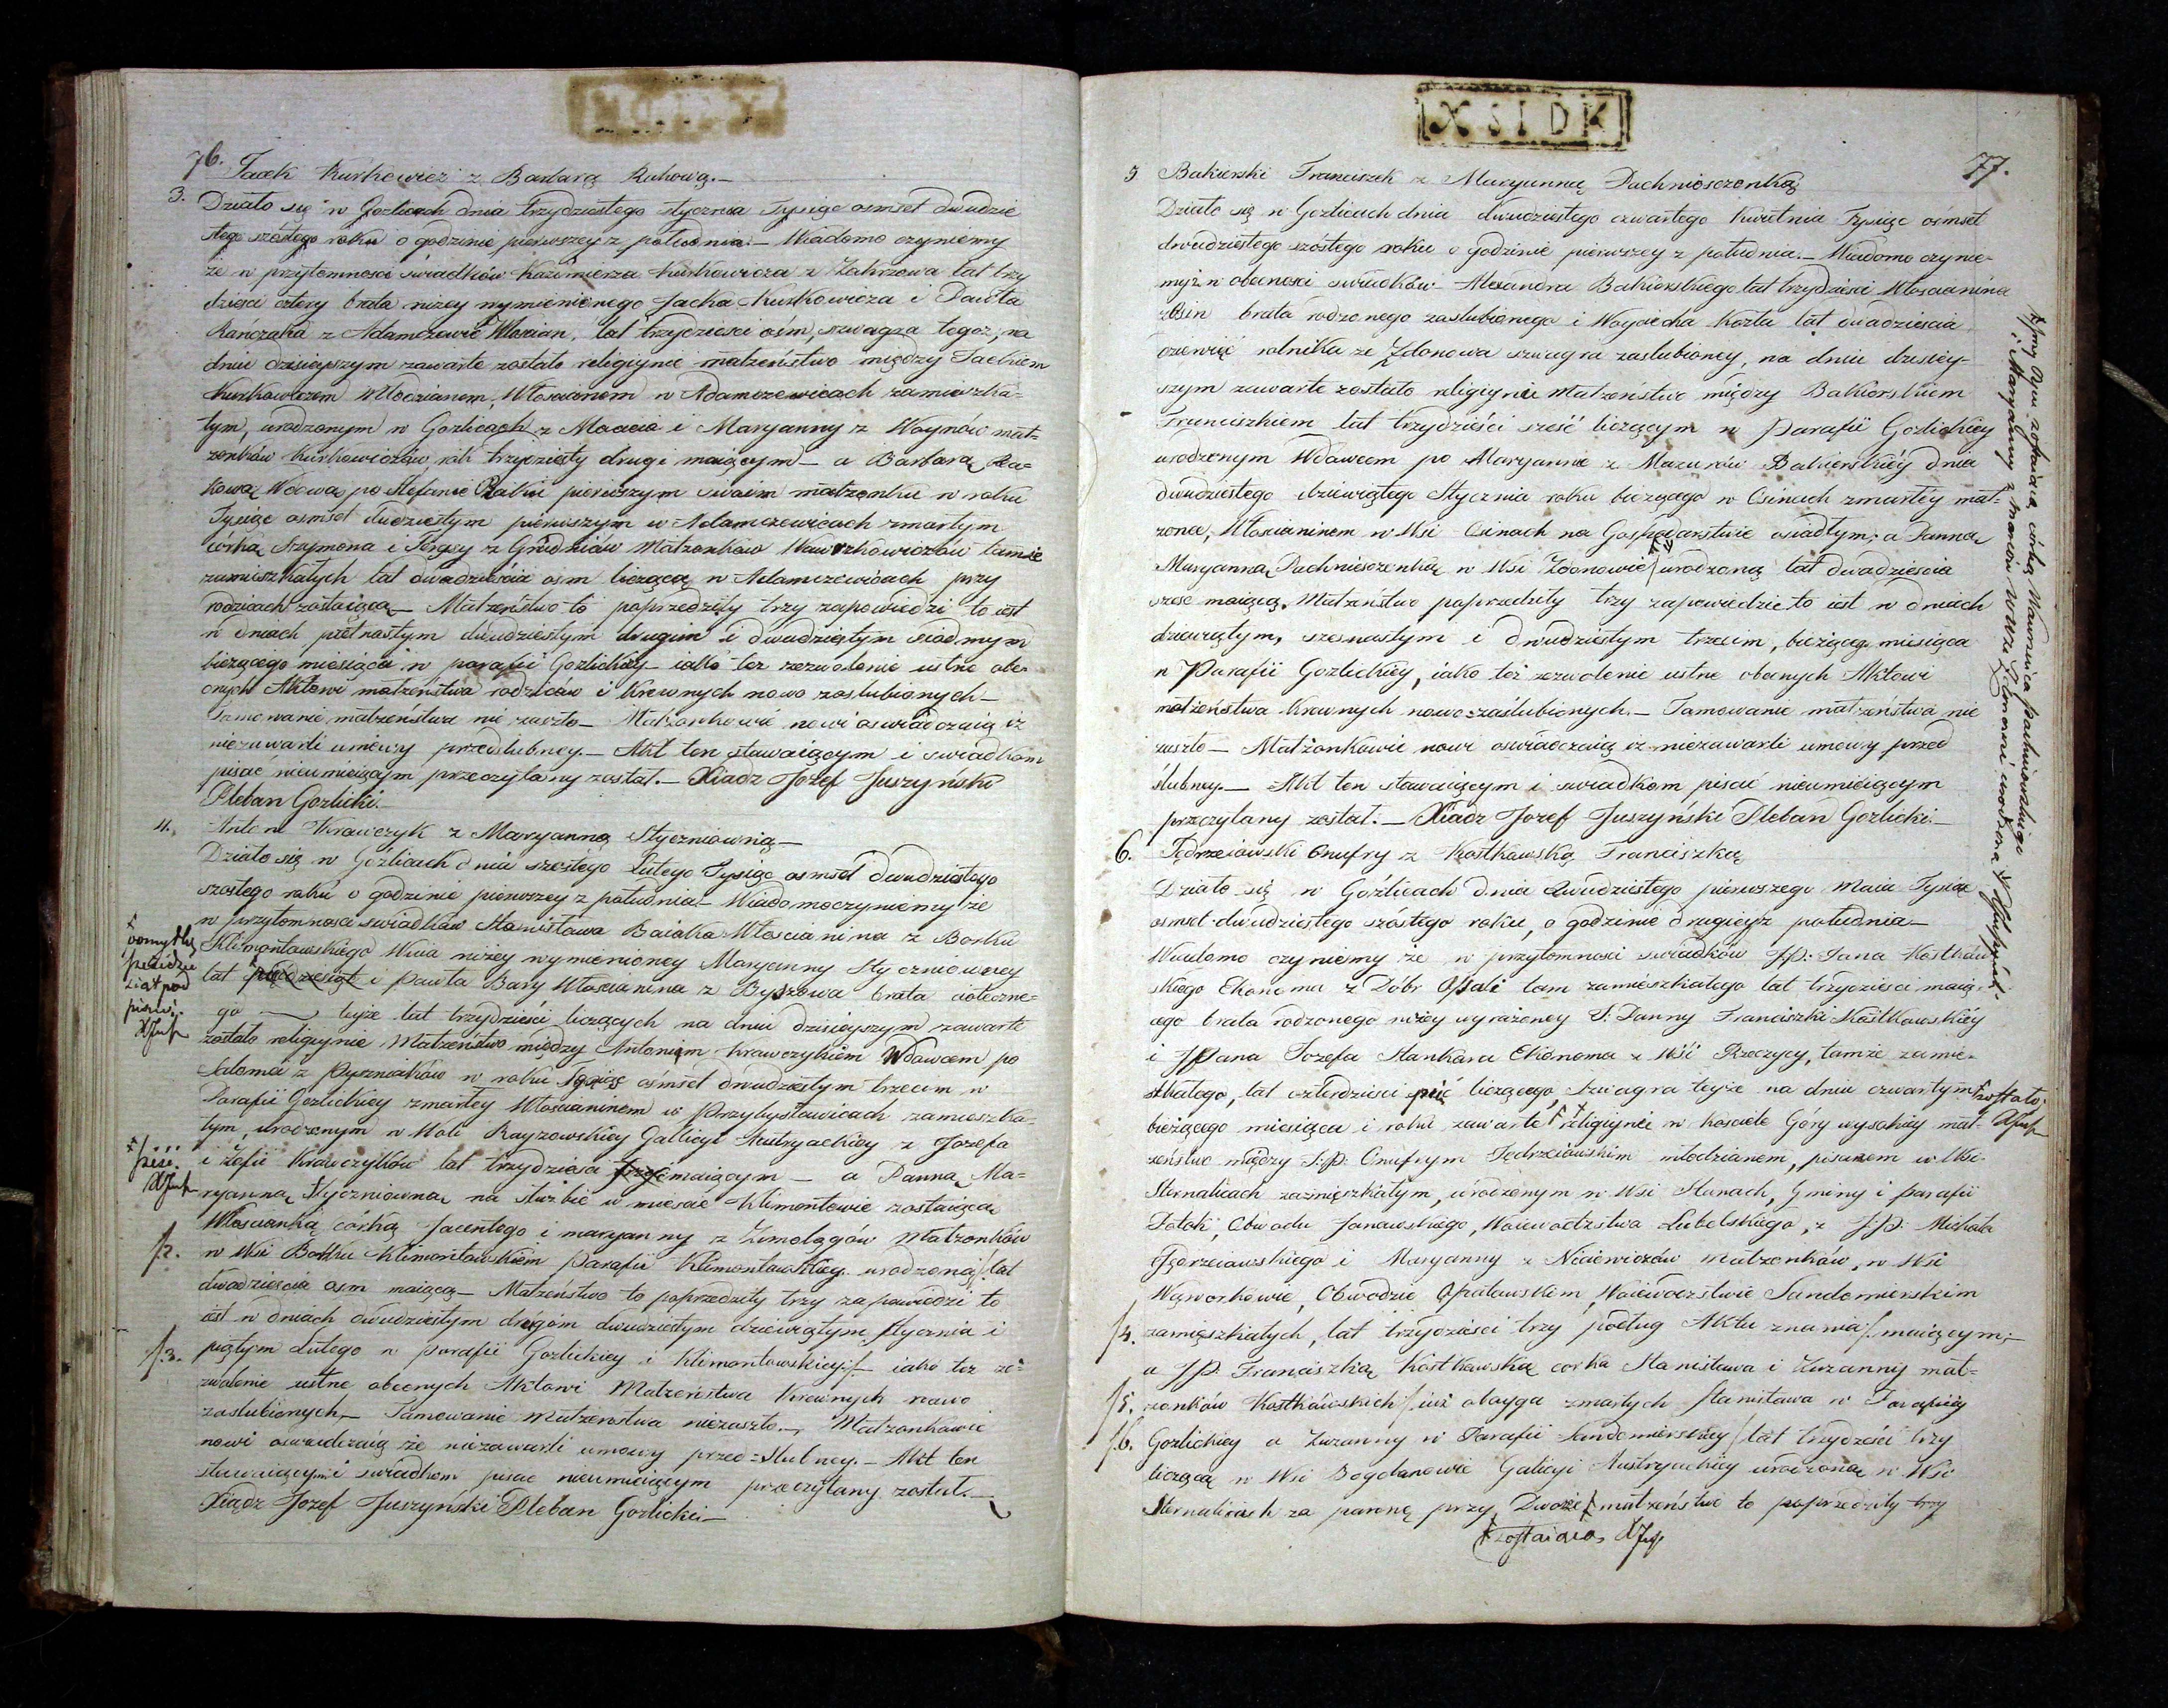 76.
Jacek Kurkowicz z Barbarą Rakową.—
3.
Działo się w Gozlicach dnia trzydziestego stycznia Tysiąc osmset dwudzie
stego szóstego roku o godzinie pierwszey z południa.— Wiadomo czyniemy
że w przytomnosci swiadków Kazimierza Kurkowicza z Zakrzowa lat trzy
dziesci cztery brata niżey wymienionego Jacka Kurkowicza i Pawła
z Adamczowic Włoscian, lat trzydziesci ośm, szwagra tegoż, na
dniu dzisieyszym zawarte zostało religiynie małżeństwo między Jackiem
Kurkowiczem Młodzianem, Włoscianem w Adamczowicach zamieszka-
łym, urodzonym w Gozlicach z Macieia i Maryanny z Woynów mał-
żonków Kurkowiczów, rok trzydziesty drugi maiącym — a Barbarą Ra-
kową Wdową po Stefanie Rakiu pierwszym swoim małżonku w roku
Tysiąc osmset dwudziestym pierwszym w Adamczowicach zmarłym
córką Szymona i z Grudniów Małżonków Wawrzkowiczów tamże
zamieszkałych lat dwadzieścia osm licząca w Adamczowicach przy
rodzicach zostaiąca.— Małżeństwo to poprzedziły trzy zapowiedzi to iest
w dniach piętnastym dwudziestym drugim i dwudziestym siódmym
bieżącego miesiąca w parafii Gozlickiey — iako też zezwolenie ustne obe-
cnych Aktowi małżeństwa rodziców i Krewnych nowo zaslubionych —
Tamowanie małżeństwa nie zaszło — Małżonkowie nowi oswiadczaią iż
niezawarli umowy przedslubney.— Akt ten stawaiącym i swiadkom
pisać nieumieiącym przeczytany został.— Xiadz Jozef Juszyński
Pleban Gozlicki.—
4.
Antoni Krawczyk z Maryanną Styczniowną —
Działo się w Gozlicach dnia szostego Lutego Tysiąc osmset dwudziestego
szostego roku o godzinie pierwszey z południa.— Wiadomo czyniemy że
w przytomnosci swiadków Stanisława Baiaka Włoscianina z Borku
Klimontowskiego Wuia niżey wymienioney Maryanny Styczniowney
lat i Pawła Bary Włoscianina z Byszowa brata cioteczne-
go — teyże lat trzydzieści liczących na dniu dzisieyszym zawarte
zostało religiynie Małżeństwo między Antonim Krawczykiem Wdowcem po
Salomei z w roku Tysiąc ośmset dwudziestym trzecim w
Parafii Gozlickiey zmarłey Włoscianinem w Przybysławicach zamieszka-
łym, urodzonym w Woli Gallicyi Austryackiey z Jozefa
i Zofii Krawczyków lat trzydziesci maiącym — a Panną Ma-
ryanną Styczniowną na służbie w miescie Klimontowie zostaiącą
Włoscianką córką Jacentego i maryanny z Zimolągów Małżonków
/2.
w Wsi Borku Klimontowskiem Parafii Klimontowskiey urodzoną /: lat
dwadziescia osm maiącą — Małżeństwo to poprzedziły trzy zapowiedzi to
iest w dniach dwudziestym drugim dwudziestym dziewiątym Stycznia i
/3.
piątym Lutego w parafii Gozlickiey i Klimontowskiey /: iako też ze-
zwolenie ustne obecnych Aktowi Małżeństwa Krewnych nowo
zaslubionych.— Tamowanie małżenstwa niezaszło.— Małżonkowie
nowi oswiadczaią że niezawarli umowy przed=slubney.— Akt ten
stawaiącym i swiadkom pisac nieumieiącym przeczytany został.—
Xiądz Jozef Juszynski Pleban Gozlicki.—
XSIDK
77.
5
Bakierski Franciszek z Maryanną Pachnieszczonką
Działo się w Gozlicach dnia dwudziestego czwartego Kwietnia Tysiąc ośmset
dwudziestego szóstego roku o godzinie pierwszey z południa.— Wiadomo czynie-
my iż w obecnosci swiadków Alexandra Bakierskiego lat trzydzieści Włoscianina
z Osin brata rodzonego zaslubionego i Woyciecha Kozła lat dwadziescia
dziewięć rolnika ze Zdanowa szwagra zaslubioney, na dniu dzisiey-
szym zawarte zostało religiynie Małżeństwo między Bakierskiem
Franciszkiem lat trzydzieści sześć liczącym w Parafii Gozlickiey
urodzonym Wdowcem po Maryannie z Mazurów Bakierskiéy dnia
dwudziestego dziewiątego Stycznia roku bieżącego w Osinach zmarłey mał-
żonce, Włoscianinem w Wsi Osinach na Gospodarstwie osiadłym; a Panną
Maryanną Pachnieszczonką w Wsi Zdanowie urodzoną lat dwadziescia
szesc maiącą. Małżeństwo poprzedziły trzy zapowiedzie to iest w dniach
dziewiątym, szesnastym i dwudziestym trzecim, bieżącego miesiąca
w Parafii Gozlickiéy, iako też zezwolenie ustne obecnych Aktowi
małżeństwa Krewnych nowo=zaślubionych.— Tamowanie małżeństwa nie
zaszło — Małżonkowie nowi oswiadczaią iż niezawarli umowy przed
ślubney.— Akt ten stawaiącym i swiadkom pisać nieumieiącym
przeczytany został.— Xiadz Jozef Juszyński Pleban Gozlicki.—
6.
Jędrzeiowski Onufry z Kostkowską Franciszką
Działo się w Goźlicach dnia dwudziestego pierwszego Maia Tysiąc
osmset dwudziestego szóstego roku, o godzinie drugiey z południa —
Wiadomo czyniemy że w przytomnosci swiadków JP: Jana Kostkow-
skiego Ekonoma z Dóbr Opali tam zamieszkałego lat trzydziesci maią-
cego brata rodzonego niżey wyrażoney J: Panny Franciszki Kostkowskiéy
i JPana Jozefa Stankara Ekonoma z Wśi Rzeczycy, tamże zamie-
szkałego, lat czterdziesci pięć liczącego, szwagra teyże na dniu czwartym
bieżącego miesiąca i roku zawarte religiynie w kosciele Góry wysokiéy mał-
żeństwo między J: P: Onufrym Jędrzeiowskim młodzianem, pisarzem w Wsi
Sternalicach zamięszkałym, urodzonym w Wsi Stanach, Gminy i parafii
Potok, Obwodu Janowskiego, Woiewodztwa Lubelskiego, z J:P: Michała
Jędrzeiowskiego i Maryanny z Niciewiczów małżonków, w Wsi
Wąworkowie, Obwodzie Opatowskiem, Woiewodztwie Sandomierskim
/4.
zamięszkałych, lat trzydziesci trzy podług Aktu znania /: maiącym;
a JP: Franciszką Kostkowską corka Stanisława i Zuzanny mał-
/5.
żonków Kostkówskich /: iuż oboyga zmarłych Stanisława w Parafiiy
/6.
Gozlickiey a Zuzanny w Parafii Sandomierskiey / lat trzydzieści trzy
liczącą w Wsi Bogdanowie Galicyi Austryackiey urodzoną w Wsi
Sternalicach za pannę przy Dworze małżeństwo to poprzedziły trzy
zostaiąca XJusz
zostało. XJusz